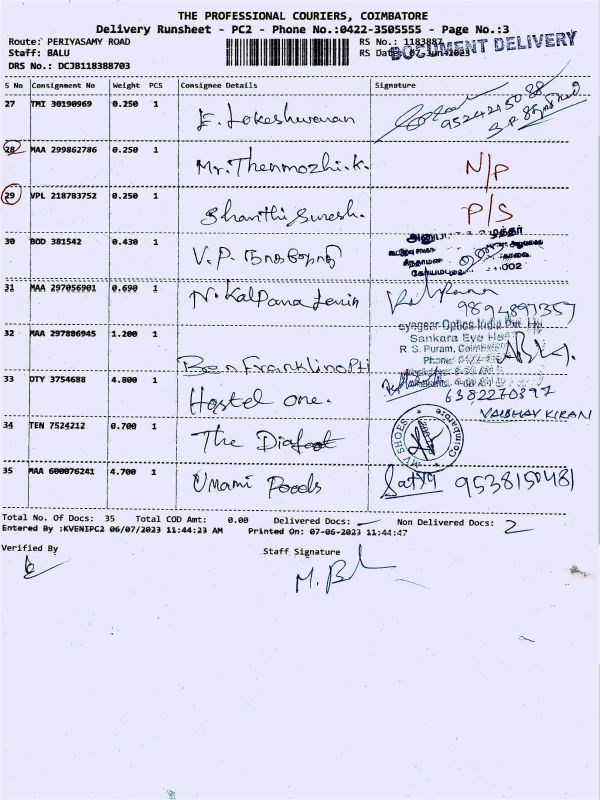 THE PROFESSIONAL COURIERS, COIMBATORE
Delivery Runsheet - PC2 - Phone No.:0422-3505555 - Page No.:3
Route: PERIYASAMY ROAD RS No.: 1183887
DOCUMENT DELIVERY
Staff: BALU RS Date: 07-Jun-2023
DRS No.: DCJB118388703
S No Consignment No Weight PCS Consignee Details Signature
27 TMI 30190969 0.250 1 E. Lokeshwaran 9524215088
28 MAA 299862786 0.250 1 Mr. Thenmozhi.K. N/P
29 VPL 218703752 0.250 1 Shanthi Suresh. P/S
30 BOD 381542 0.430 1 V.P.
31 MAA 297056901 0.690 1 N. Kalpana Lenin Kalpana
9894897357
32 MAA 297886945 1.200 1 Ben Franklin Opti
eyegear Optics India Pvt. Ltd
Sankara Eye
R.S. Puram, Coimbatore
Phone: 0422
33 DTY 3754688 4.800 1 Hostel one.
6382270397
VAIBHAV KIRAN
34 TEN 7524212 0.700 1 The
MY SHOES Coimbatore
35 MAA 600076241 4.700 1 Umami Foods Satya 9538150481
Total No. Of Docs: 35 Total COD Amt: 0.00 Delivered Docs: Non Delivered Docs: 2
Entered By :KVENIPC2 06/07/2023 11:44:23 AM Printed On: 07-06-2023 11:44:47
Verified By Staff Signature